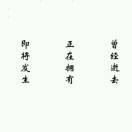 曾经逝去
正在拥有
即将发生